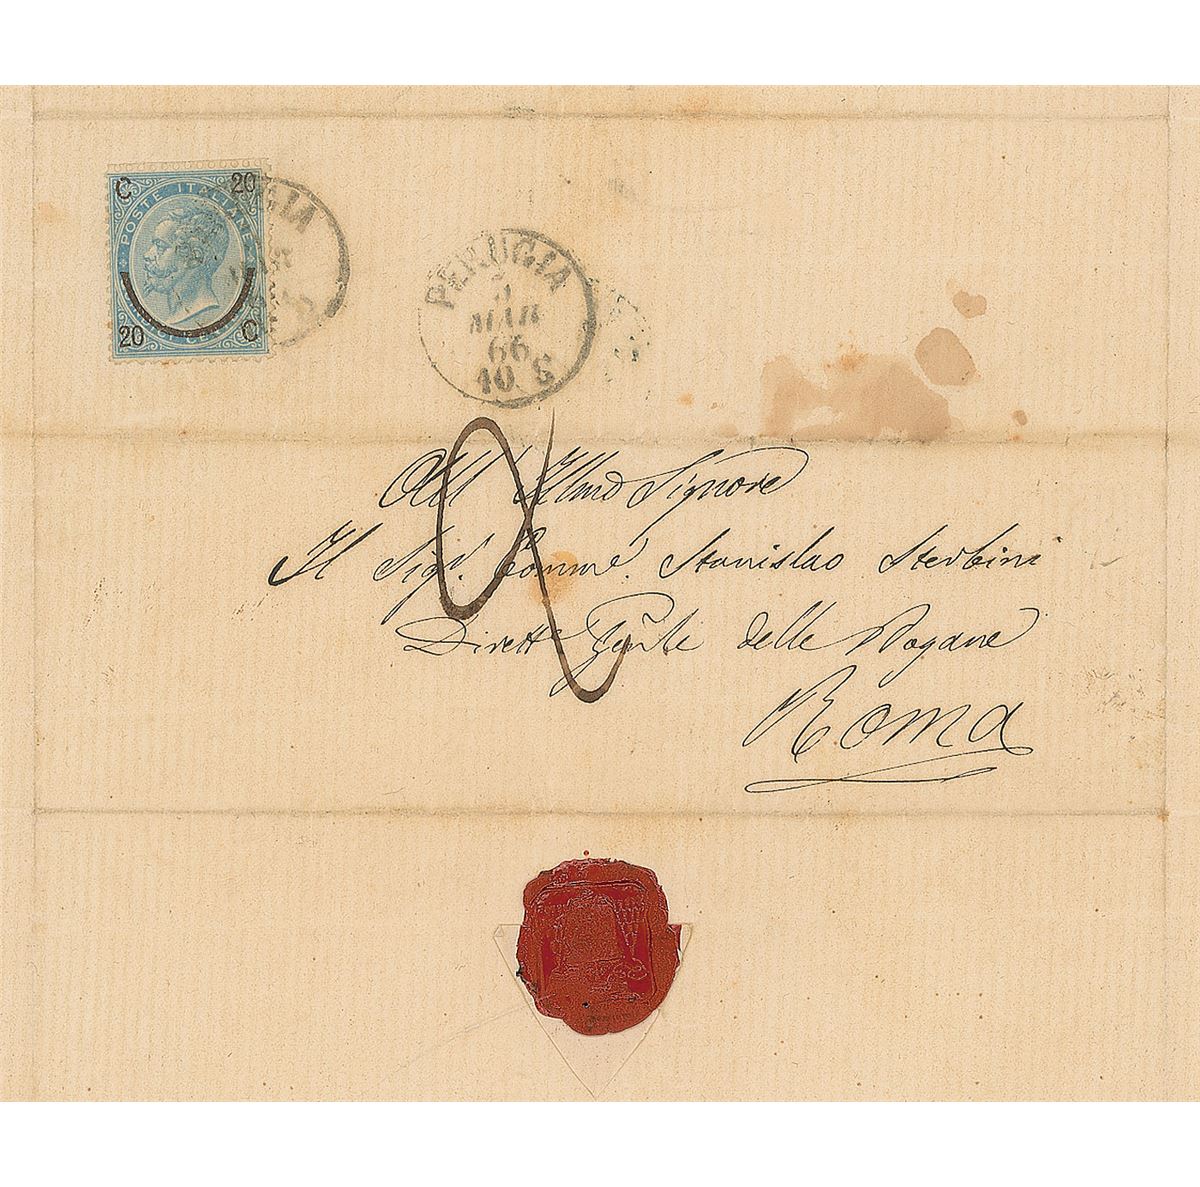 C 20
POSTE ITALIANE
20 C
PERUGIA
MAR
66
10 S
All' Illmo Signore
Il Sigr. Comme. Stanislao Sterbini
Dirett. Gen̄le delle Dogane
Roma